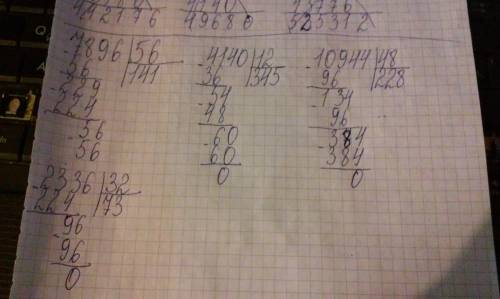 442176 4140 13776
49680 525312
-7896|56 -4140|12 -10944|48
56 |141 36 |345 96 |228
-229 -54 -134
224 48 96
-56 -60 -384
56 60 384
0 0
-2336|32
224 |73
-96
96
0